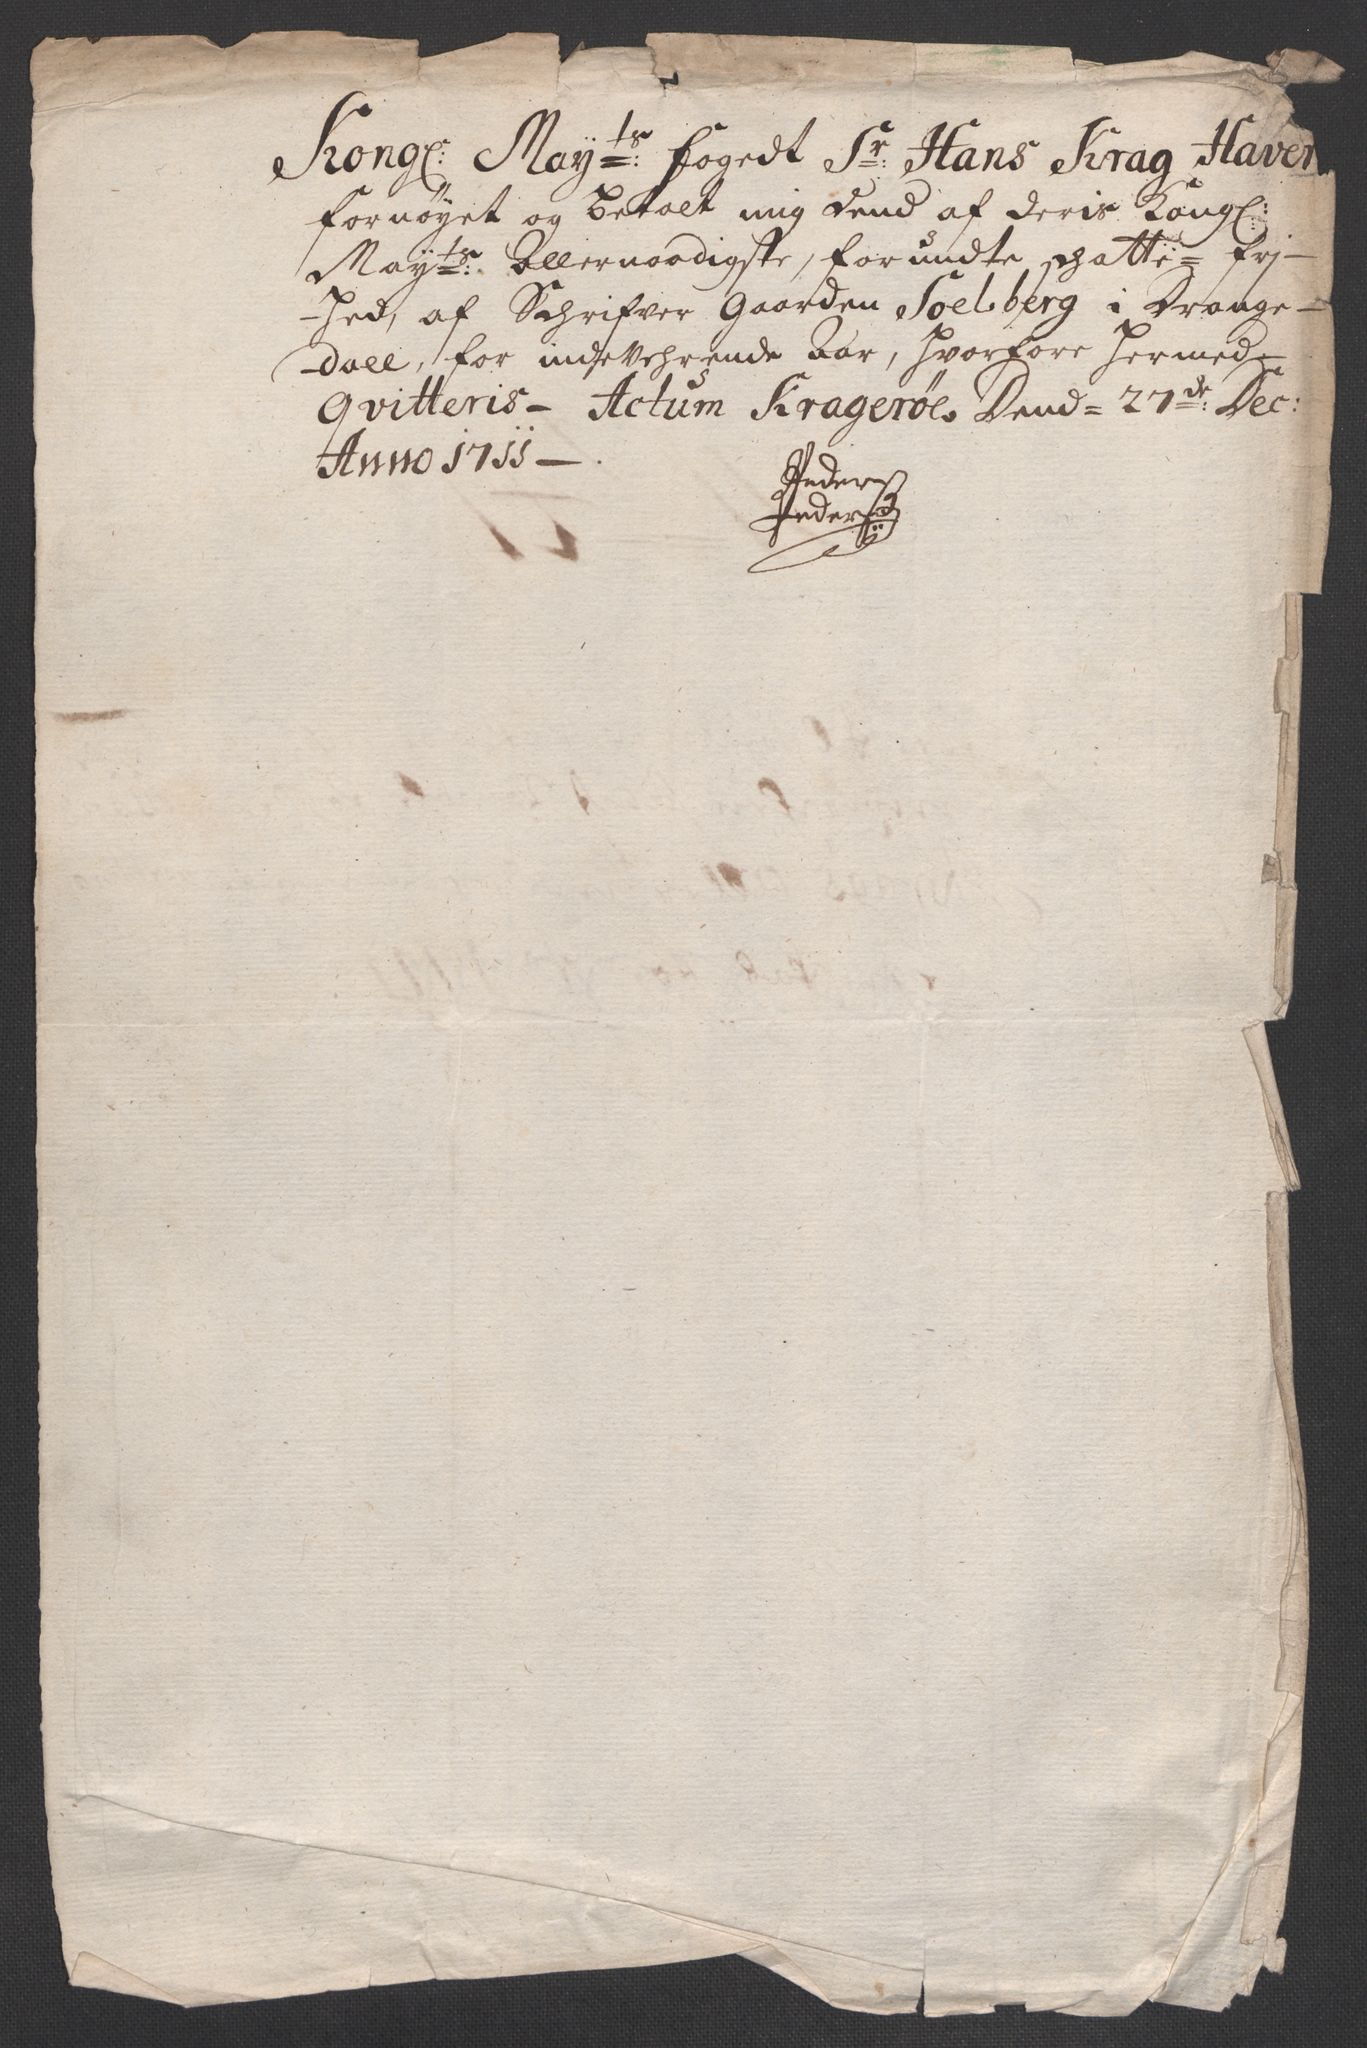 Kongl: Mayts: fogedt Sr: Hans Krag Haver
fornøyet og betalt mig dend af deris Kongl:
Mayts: Allernaadigste, forundte schatte= frj-
-hed, af Schrifver Gaarden Soelberg i Drange-
-dall, for indeverhrende Aar, hvorfore hermed=
qvitteris- Actum Kragerøe. Dend= 27de: Dec:
Anno 1711-.
Peders
Peders